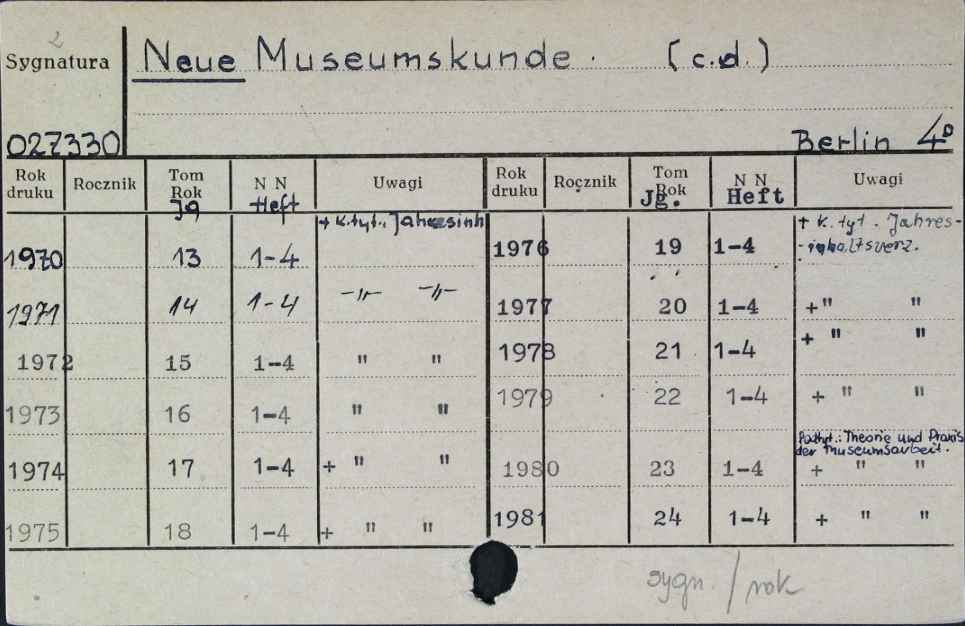 2
Sygnatura
Neue Museumskunde. (c.d.)
027330
Berlin 4°
Rok druku Rocznik Tom Rok Jg N N Heft Uwagi Rok druku Rocznik Tom Rok Jg. N N Heft Uwagi
1970 13 1-4 + K.tyt., Jahresinh
1971 14 1-4 -"- -"-
1972 15 1-4 " "
1973 16 1-4 " "
1974 17 1-4 + " "
1975 18 1-4 + " "
1976 19 1-4 + K. tyt. Jahres-
-inhaltsverz.
1977 20 1-4 + " "
1978 21 1-4 + " "
1979 22 1-4 + " "
Podtyt.: Theorie und Praxis
der Museumsarbeit.
1980 23 1-4 + " "
1981 24 1-4 + " "
sygn. / rok